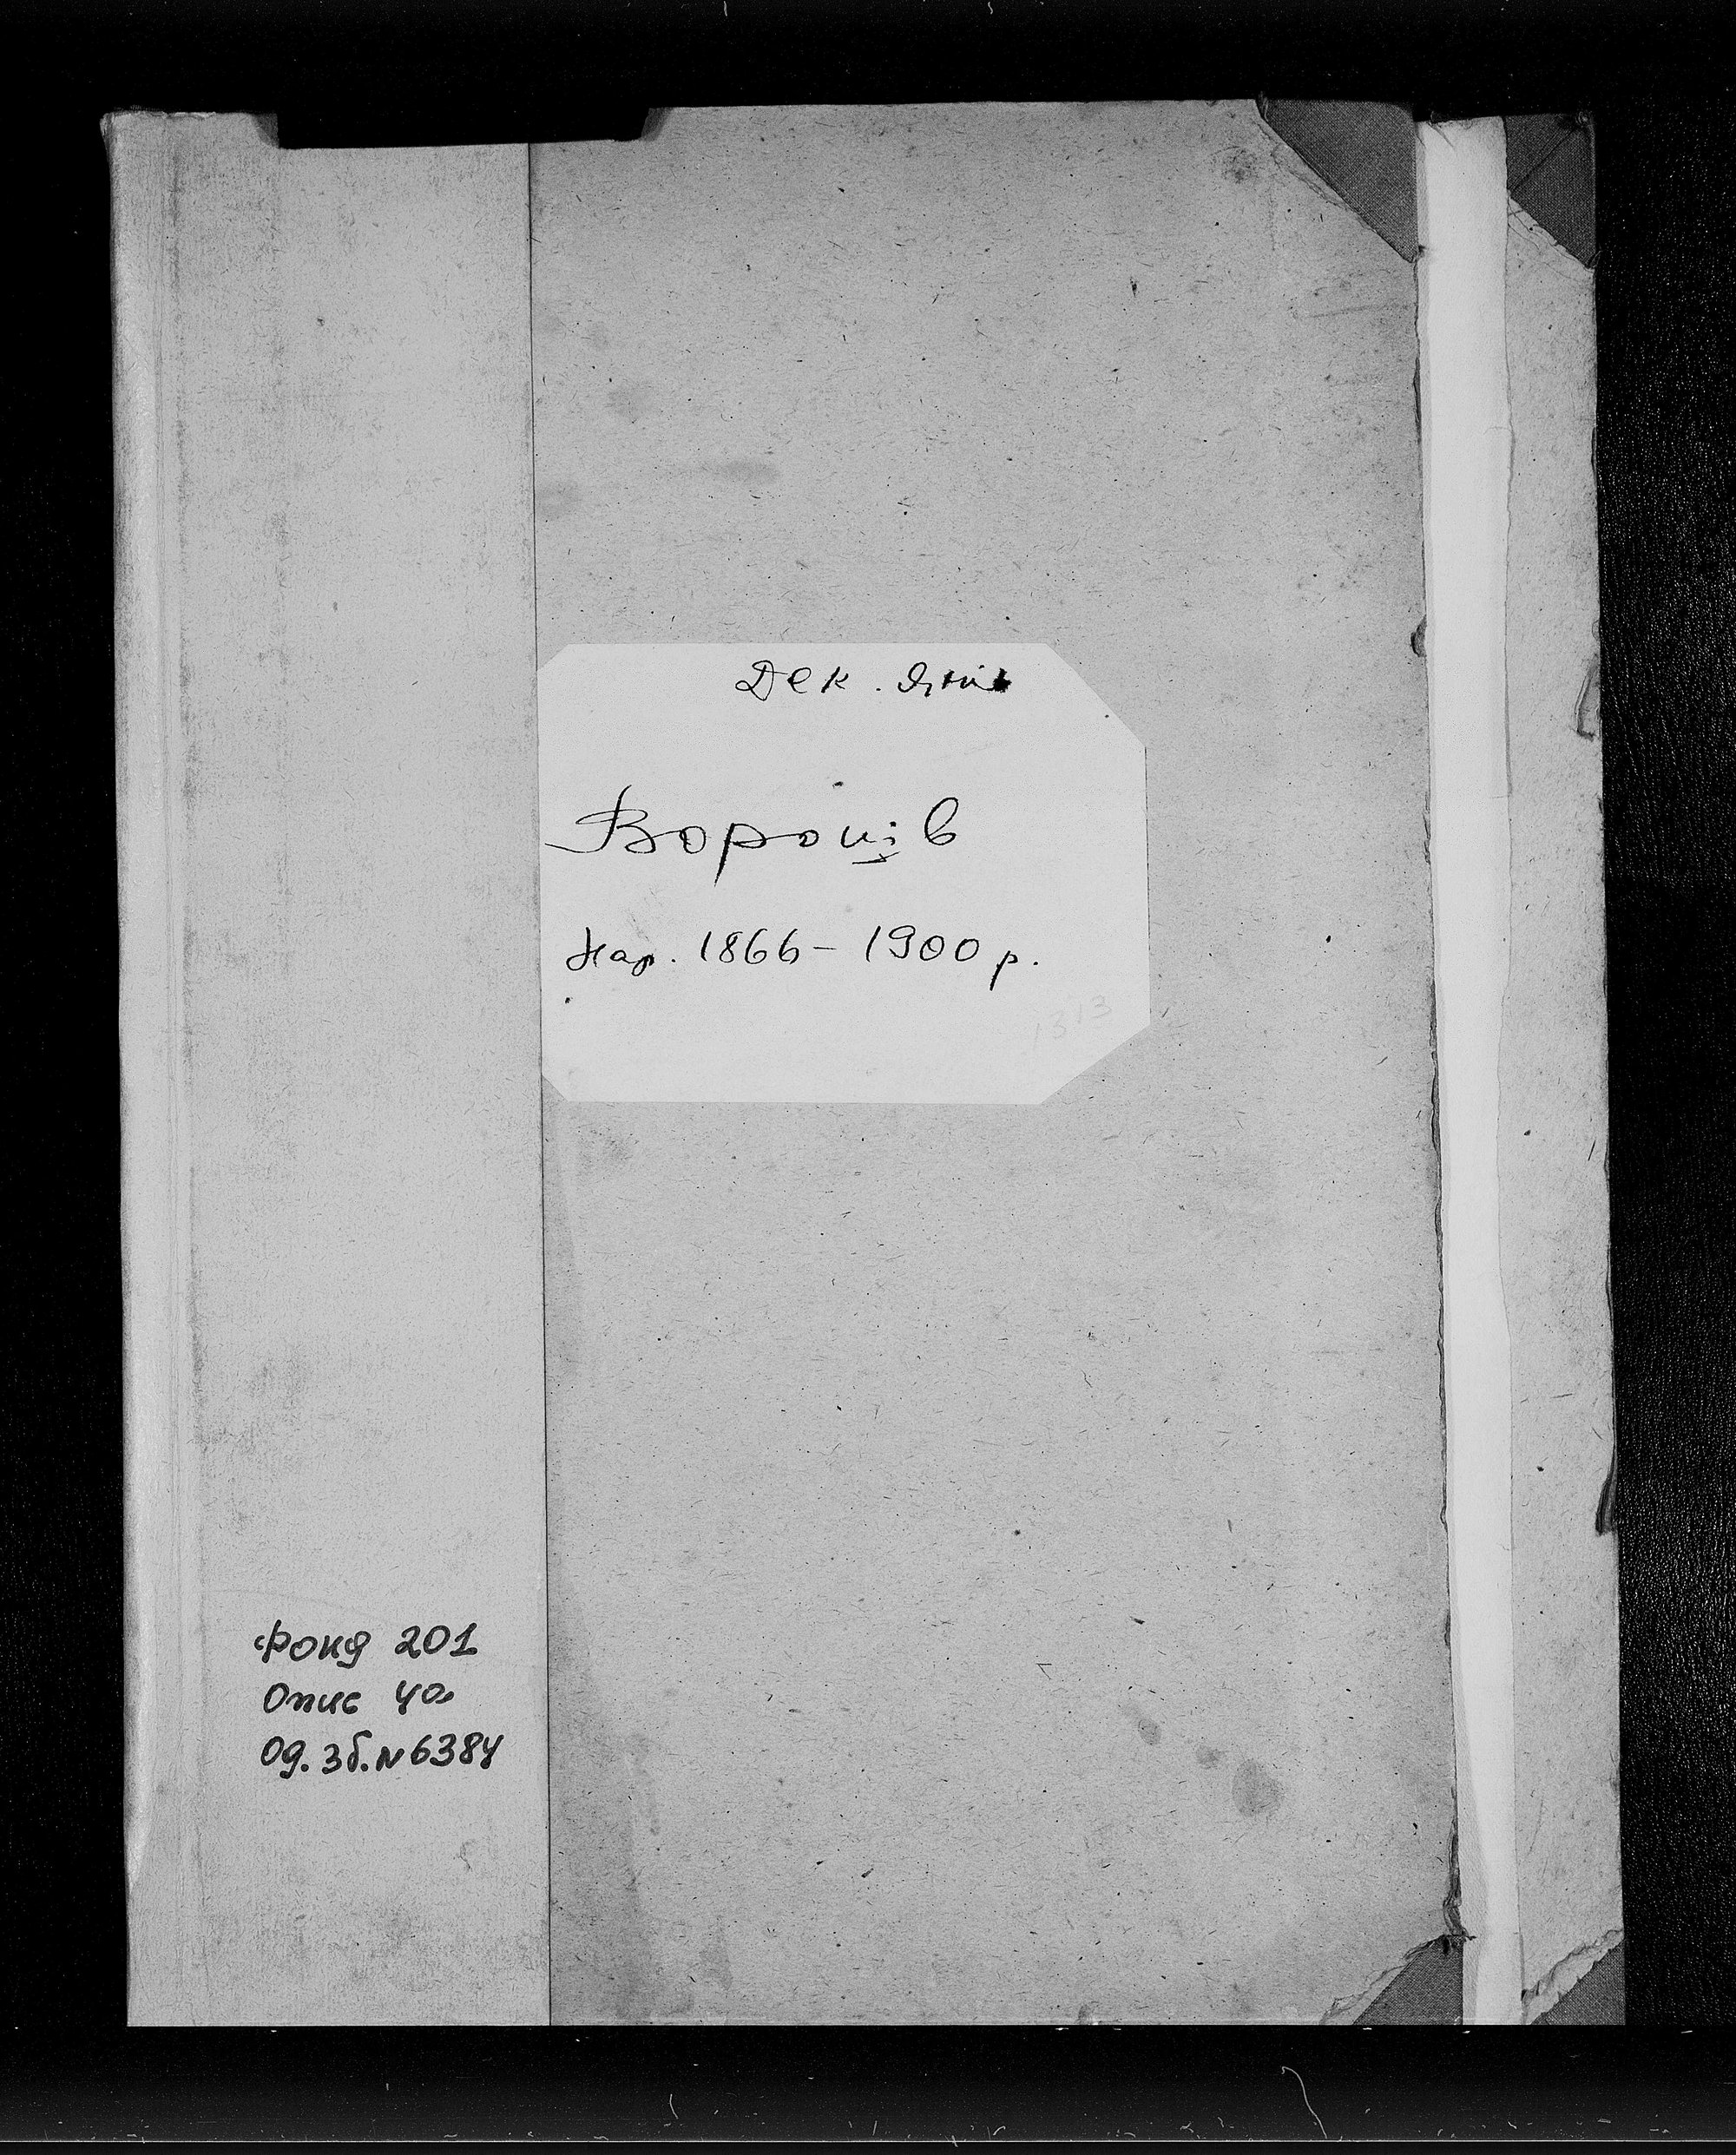 Дек. Янів
Вороців
Нар. 1866 – 1900 р.
1313
Фонд 201
Опис 4а
Од. зб. N 6384